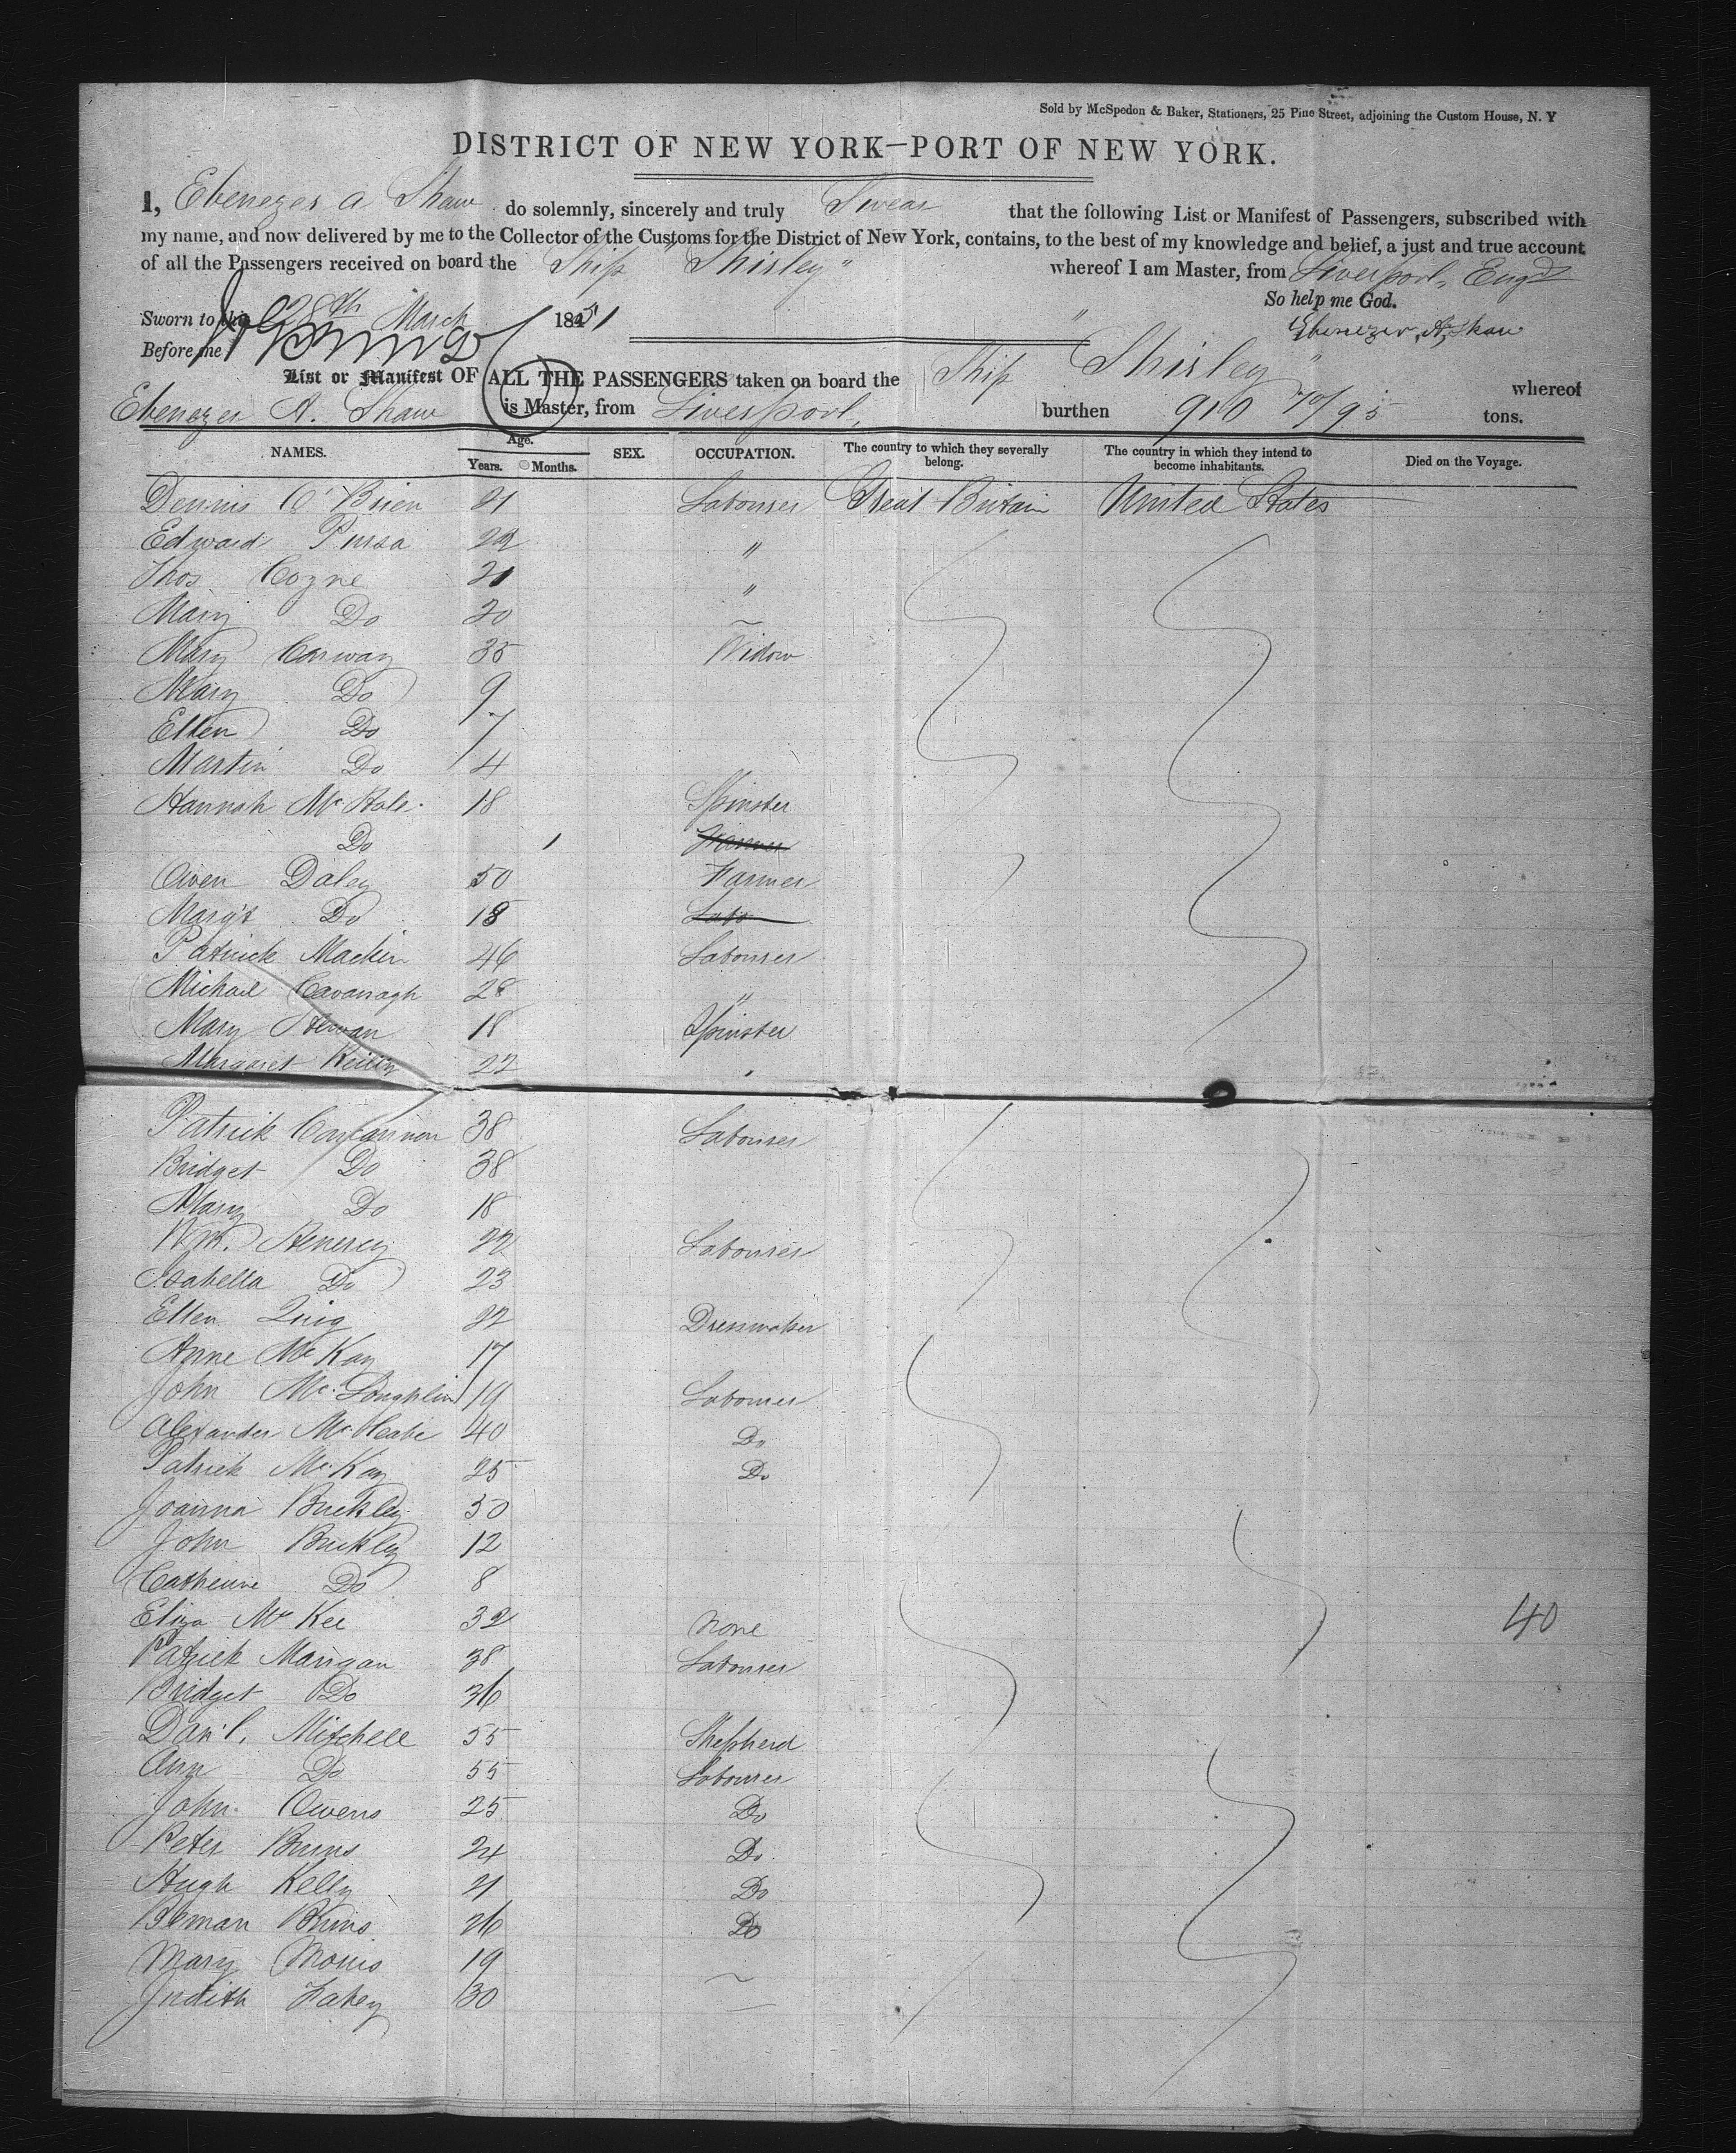 Sold by McSpedon & Baker, Stationers, 25 Pine Street, adjoining the Custom House, N. Y
DISTRICT OF NEW YORK—PORT OF NEW YORK.
I, Ebenezer A Shaw do solemnly, sincerely and truly Swear that the following List or Manifest of Passengers, subscribed with
my name, and now delivered by me to the Collector of the Customs for the District of New York, contains, to the best of my knowledge and belief, a just and true account
of all the Passengers received on board the Ship "Shirley" whereof I am Master, from Liverpool, Engd
So help me God.
Sworn to this 28th March 1851
Ebenezer A. Shaw
Before me
List or Manifest OF ALL THE PASSENGERS taken on board the Ship Shirley" whereof
Ebenezer A. Shaw is Master, from Liverpool, burthen 910 70/95 tons.
NAMES. Age. Years. Months. SEX. OCCUPATION. The country to which they severally belong. The country in which they intend to become inhabitants. Died on the Voyage.
Dennis O'Brien 21 Labourer Great Britain United States
Edward 22 "
Thos Coyne 21 "
Mary Do 20 ~
Mary Conway 35 Widow
Mary Do 9
Ellen Do 7
Martin Do 4
Hannah Mc Hale 18 Spinster
Do 1 Farmer
Owen Daley 50 Farmer
Margt Do 18 Labo
Patrick Mackin 46 Labourer
Michael Cavanagh 28 "
Mary 18 Spinster
Margaret Reilly 22 "
Patrick Concannon 38 Labourer
Bridget Do 38
Mary Do 18
Wm. Henerey 22 Labourer
Isabella Do 23
Ellen Quig 22 Dressmaker
Anne Mc Kay 17
John Mc Loughlin 19 Labourer
Alexander Mc Cabe 40 Do
Patrick Mc Kay 25 Do
Joanna Buckley 50
John Buckley 12
Catherine Do 8
Eliza Mc Kee 32 None 40
Patrick Mangan 38 Labourer
Bridget Do 36
Dan'l. Mitchell 55 Shepherd
Ann Do 55 Labourer
John Owens 25 Do
Peter Burns 24 Do
Hugh Kelly 21 Do
26 Do
Mary Morris 19 ~
Judith Fahey 30 —